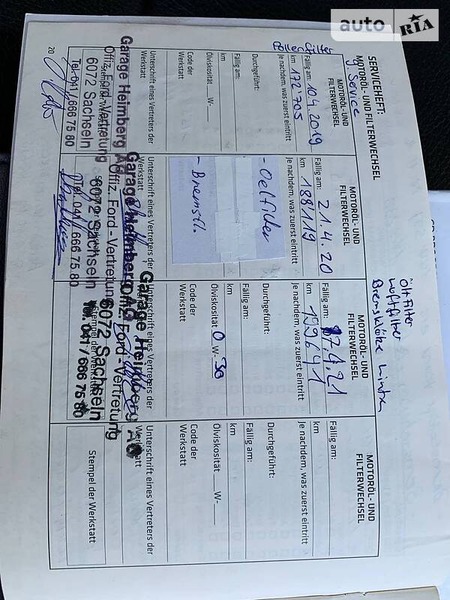 auto RIA
SERVICEHEFT:
MOTORÖL- UND FILTERWECHSEL
Service
MOTORÖL- UND
FILTERWECHSEL
Je nachdem, was zuerst eintritt
km 172705
Fällig am: 10.4.2019
Durchgeführt:
Pollenfilter
Fällig am:
km
Ölviskosität ___W-___
Code der
Werkstatt
Unterschrift eines Vertreters der
Garage Heimberg AG
Offiz. Ford-Vertretung
6072 Sachseln
Tel. 041 / 666 75 80
20
MOTORÖL- UND
FILTERWECHSEL
Je nachdem, was zuerst eintritt
km 188119
Fällig am: 21.4.20
- Oelfilter
- Bremsfl.
Unterschrift eines Vertreters der
Werkstatt
Garage Heimberg AG
Offiz. Ford-Vertretung
6072 Sachseln
Tel. 041 / 666 75 80
Ölfilter
Luftfilter
MOTORÖL- UND
FILTERWECHSEL
Je nachdem, was zuerst eintritt
km 199641
Fällig am: 27.4.21
Durchgeführt:
Fällig am:
km
Ölviskosität 0 W- 30
Code der
Werkstatt
Unterschrift eines Vertreters der
Garage Heimberg AG
Offiz. Ford-Vertretung
6072 Sachseln
Tel. 041 / 666 75 80
MOTORÖL- UND
FILTERWECHSEL
Je nachdem, was zuerst eintritt
km
Fällig am:
Durchgeführt:
Fällig am:
km
Ölviskosität ___W-___
Code der
Werkstatt
Unterschrift eines Vertreters der
Werkstatt
Stempel der Werkstatt